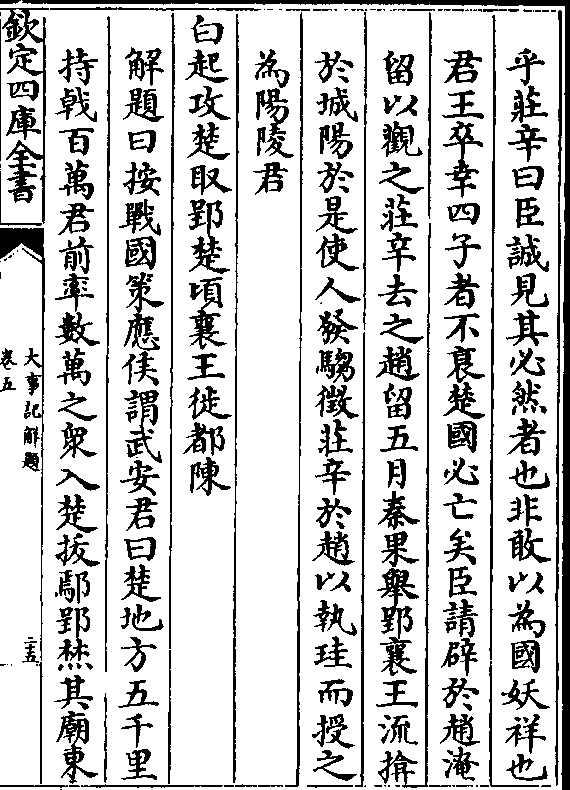 乎莊辛曰臣誠見其必然者也非敢以為國妖祥也
君王卒幸四子者不衰楚國必亡矣臣請辟於趙淹
留以觀之莊辛去之趙留五月秦果舉郢襄王流揜
於城陽於是使人發騶徵莊辛於趙以執珪而授之
為陽陵君
白起攻楚取郢楚頃襄王徙都陳
解題曰按戰國策應侯謂武安君曰楚地方五千里
持戟百萬君前率數萬之衆入楚拔鄢郢焚其廟東
欽定四庫全書
大事記解題
卷五
二五